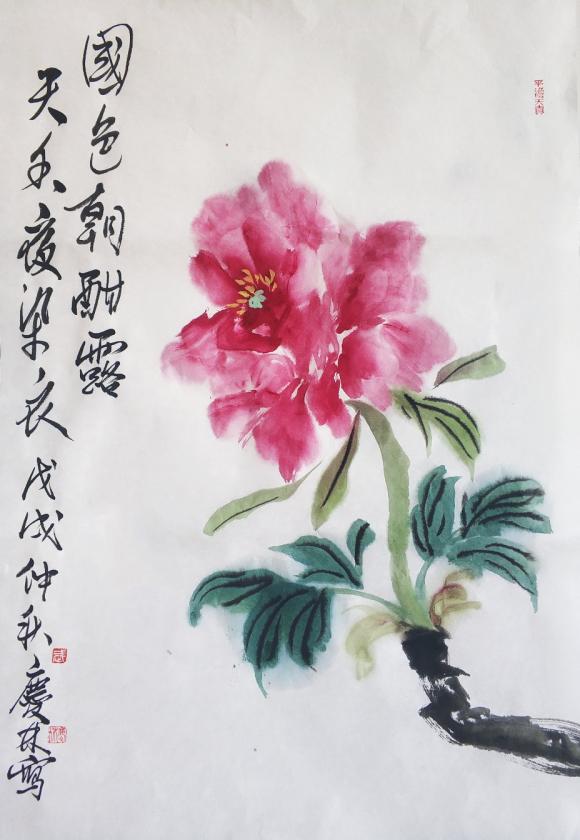 平淡天真
國色朝酣露
天香夜染衣戊戌仲秋慶林寫